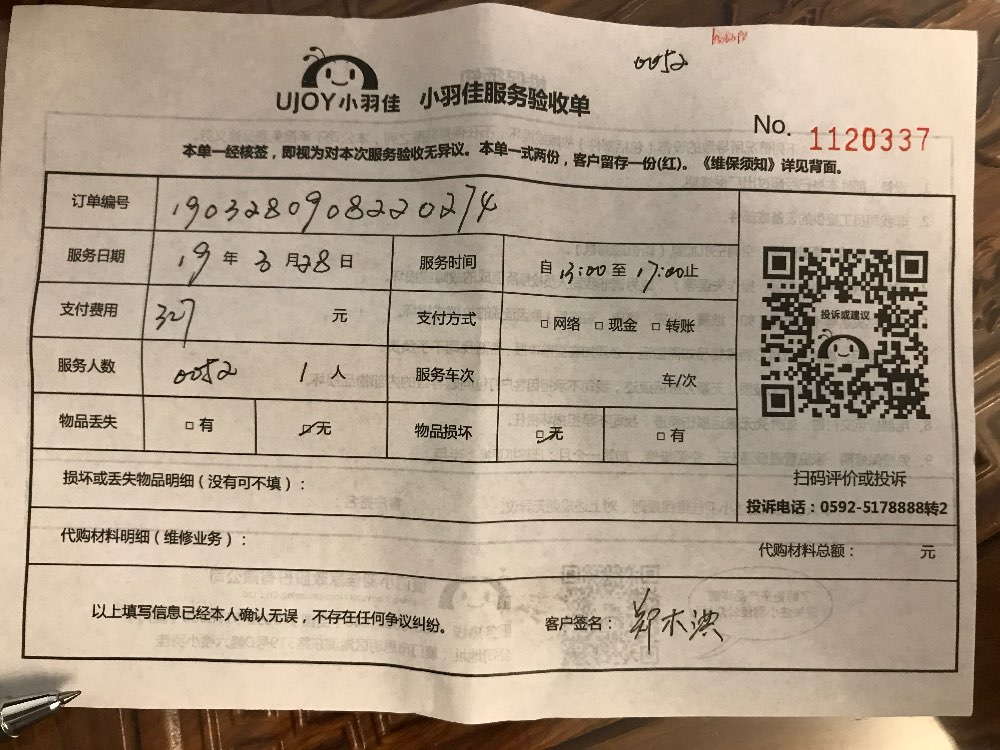 0052
UJOY小羽佳 小羽佳服务验收单
No. 1120337
本单一经核签，即视为对本次服务验收无异议。本单一式两份，客户留存一份(红)。《维保须知》详见背面。
订单编号 190328090822 0274
服务日期 19 年 3 月 28 日 服务时间 自 13:00 至 17:00 止
支付费用 327 元 支付方式 □ 网络 □ 现金 □ 转账
服务人数 0052 1 人 服务车次 车/次
物品丢失 □ 有 ☑ 无 物品损坏 ☑ 无 □ 有
投诉或建议
扫码评价或投诉
投诉电话：0592-5178888转2
损坏或丢失物品明细（没有可不填）：
代购材料明细（维修业务）： 代购材料总额： 元
以上填写信息已经本人确认无误，不存在任何争议纠纷。 客户签名： 郑木洪